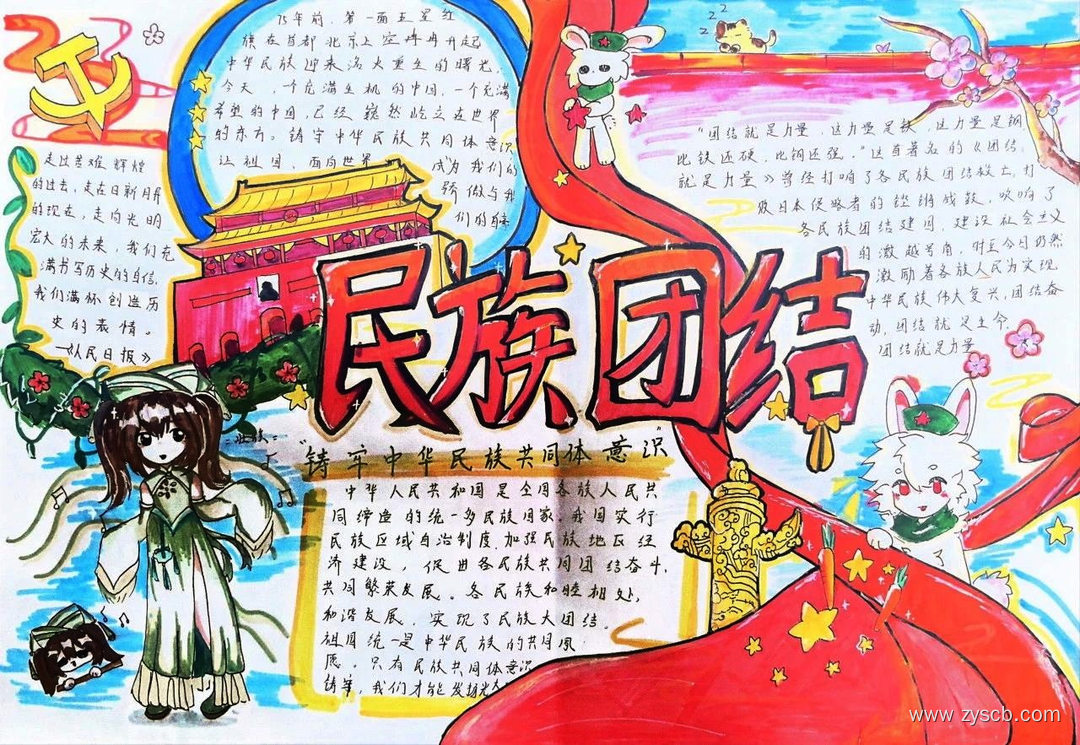 75年前，第一面五星红
旗在首都北京上空冉冉升起
中华民族迎来浴火重生的曙光，
今天，一个充满生机的中国，一个充满
希望的中国，已经巍然屹立在世界
的东方。铸牢中华民族共同体意识
让祖国，面向世界 成为我们的
骄傲与我
们的
走过苦难辉煌
的过去，走在日新月异
的现在，走向光明
宏大的未来，我们充
满书写历史的自信，
我们满怀创造历
史的表情。
—《人民日报》
"团结就是力量，这力量是铁，这力量是钢
比铁还硬，比钢还强。"这首著名的《团结
就是力量》曾经打响了各民族团结救亡，打
败日本侵略者的铿锵战鼓，吹响了
各民族团结建国，建设社会主义
的激越号角，时至今日仍然
激励着各族人民为实现
中华民族伟大复兴，团结奋
动，团结就是生命
团结就是力量
民族团结
"铸牢中华民族共同体意识"
中华人民共和国是全国各族人民共
同缔造的统一多民族国家。我国实行
民族区域自治制度，加强民族地区经
济建设，促进各民族共同团结奋斗，
共同繁荣发展。各民族和睦相处，
和谐发展，实现了民族大团结。
祖国统一是中华民族的共同夙
愿。只有民族共同体意识
铸牢，我们才能发扬光大
www.zyscb.com